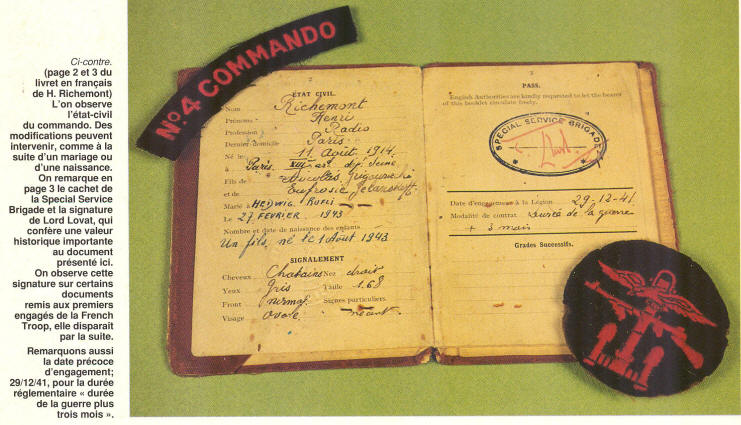 Ci-contre.
(page 2 et 3 du
livret en français
de H. Richemont)
L'on observe
l'état-civil
du commando. Des
modifications peuvent
intervenir, comme à la
suite d'un mariage ou
d'une naissance.
On remarque en
page 3 le cachet de
la Special Service
Brigade et la signature
de Lord Lovat, qui
confère une valeur
historique importante
au document
présenté ici.
On observe cette
signature sur certains
documents
remis aux premiers
engagés de la French
Troop, elle disparait
par la suite.
Remarquons aussi
la date précoce
d'engagement;
29/12/41, pour la durée
réglementaire « durée
de la guerre plus
trois mois ».
No. 4 COMMANDO
2
ÉTAT CIVIL.
Nom Richemont
Prénoms Henri
Profession à Radio
Dernier domicile Paris
Né le 11 Août 1914.
à Paris. XIII arr. dép. Seine
Fils de
et de Eufrosie
Marié à HEDWIG RUFLI
Le 27 FEVRIER 1943
Nombre et date de naissance des enfants
Un fils, né le 1 Août 1943
SIGNALEMENT
Cheveux Chatains Nez droit
Yeux gris Taille 1.68
Front normal Signes particuliers
Visage ovale néant
3
PASS.
English Authorities are kindly requested to let the bearer
of this booklet circulate freely.
SPECIAL SERVICE BRIGADE
Date d'engagement à la Légion 29-12-41
Modalité de contrat Durée de la guerre
+ 3 mois
Grades Successifs.